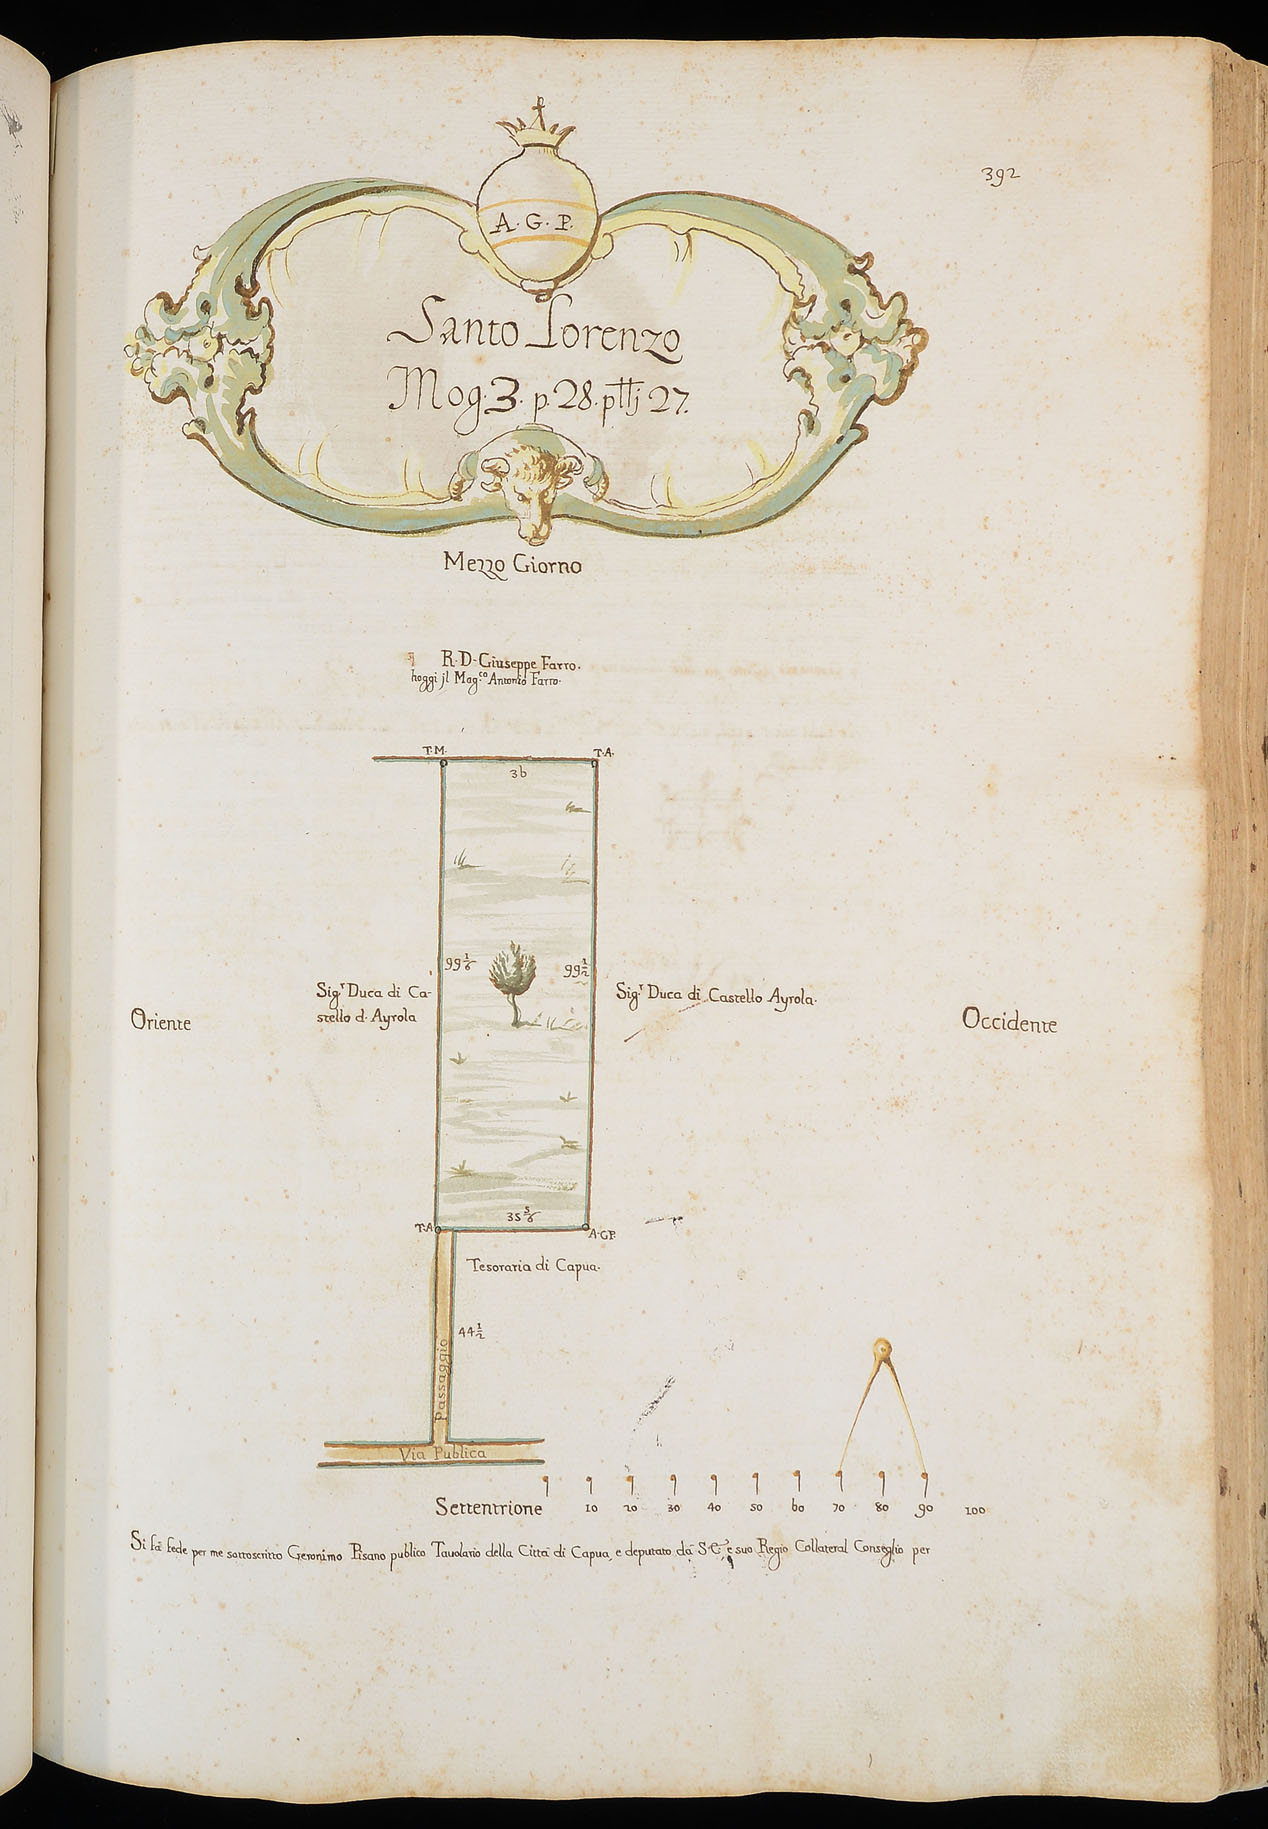 392
A. G. P.
Santo Lorenzo
Mog. 3. p. 28. pttj 27.
Mezzo Giorno
R. D. Giuseppe Farro.
hoggi jl Mag.co Antonio Farro.
T. M.
T. A.
36
99 1/6
99 1/2
Sig.r Duca di Ca-
stello d. Ayrola
Sig.r Duca di Castello Ayrola.
Oriente
Occidente
35 5/6
T. A
A. GP.
Tesoraria di Capua.
44 1/2
Passaggio
Via Publica
Settentrione
10 20 30 40 50 60 70 80 90 100
Si fà fede per me sottoscritto Geronimo Pisano publico Tauolario della Città di Capua, e deputato dà S. E. e suo Regio Collateral Conseglio per